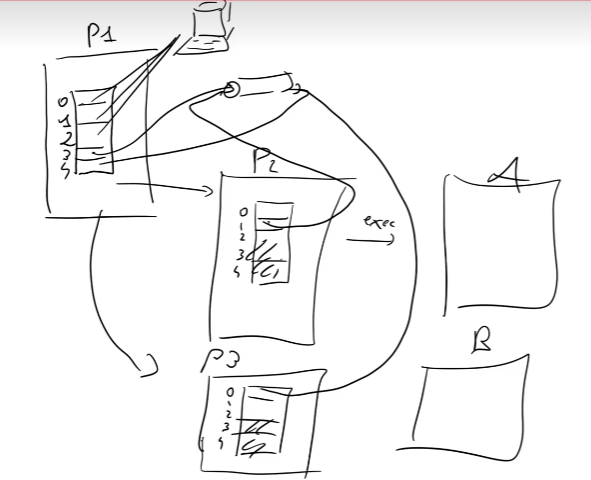 P1
0
1
2
3
4
P2
0
1
2
3
4
exec
A
P3
0
1
2
3
4
B